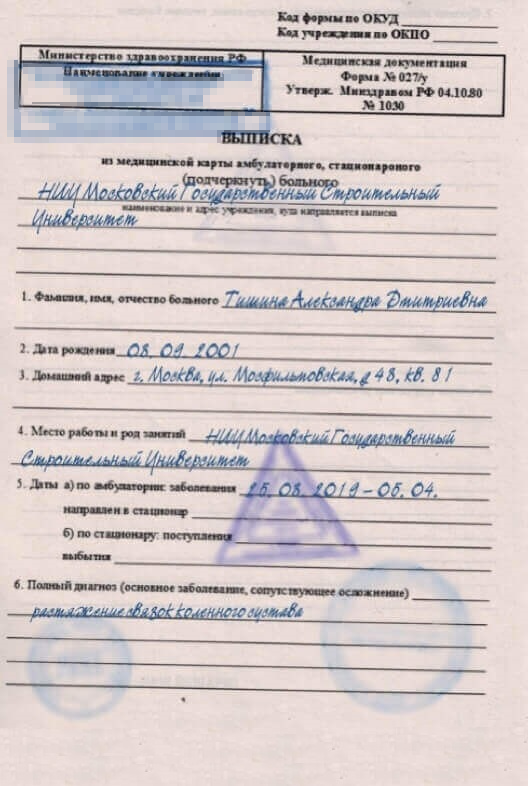 Код формы по ОКУД
Код учреждения по ОКПО
Министерство здравоохранения РФ
Наименование учреждения
Медицинская документация
Форма № 027/у
Утверж. Минздравом РФ 04.10.80
№ 1030
ВЫПИСКА
из медицинской карты амбулаторного, стационарного
(подчеркнуть) больного
НИУ Московский Государственный Строительный
наименование и адрес учреждения, куда направляется выписка
Университет
1. Фамилия, имя, отчество больного Тишина Александра Дмитриевна
2. Дата рождения 08. 09. 2001
3. Домашний адрес г. Москва, ул. Мосфильмовская, д 48, кв. 81
4. Место работы и род занятий НИУ Московский Государственный
Строительный Университет
5. Даты а) по амбулатории: заболевания 25. 08. 2019 – 05. 04.
направлен в стационар
б) по стационару: поступления
выбытия
6. Полный диагноз (основное заболевание, сопутствующее осложнение)
растяжение связок коленного сустава